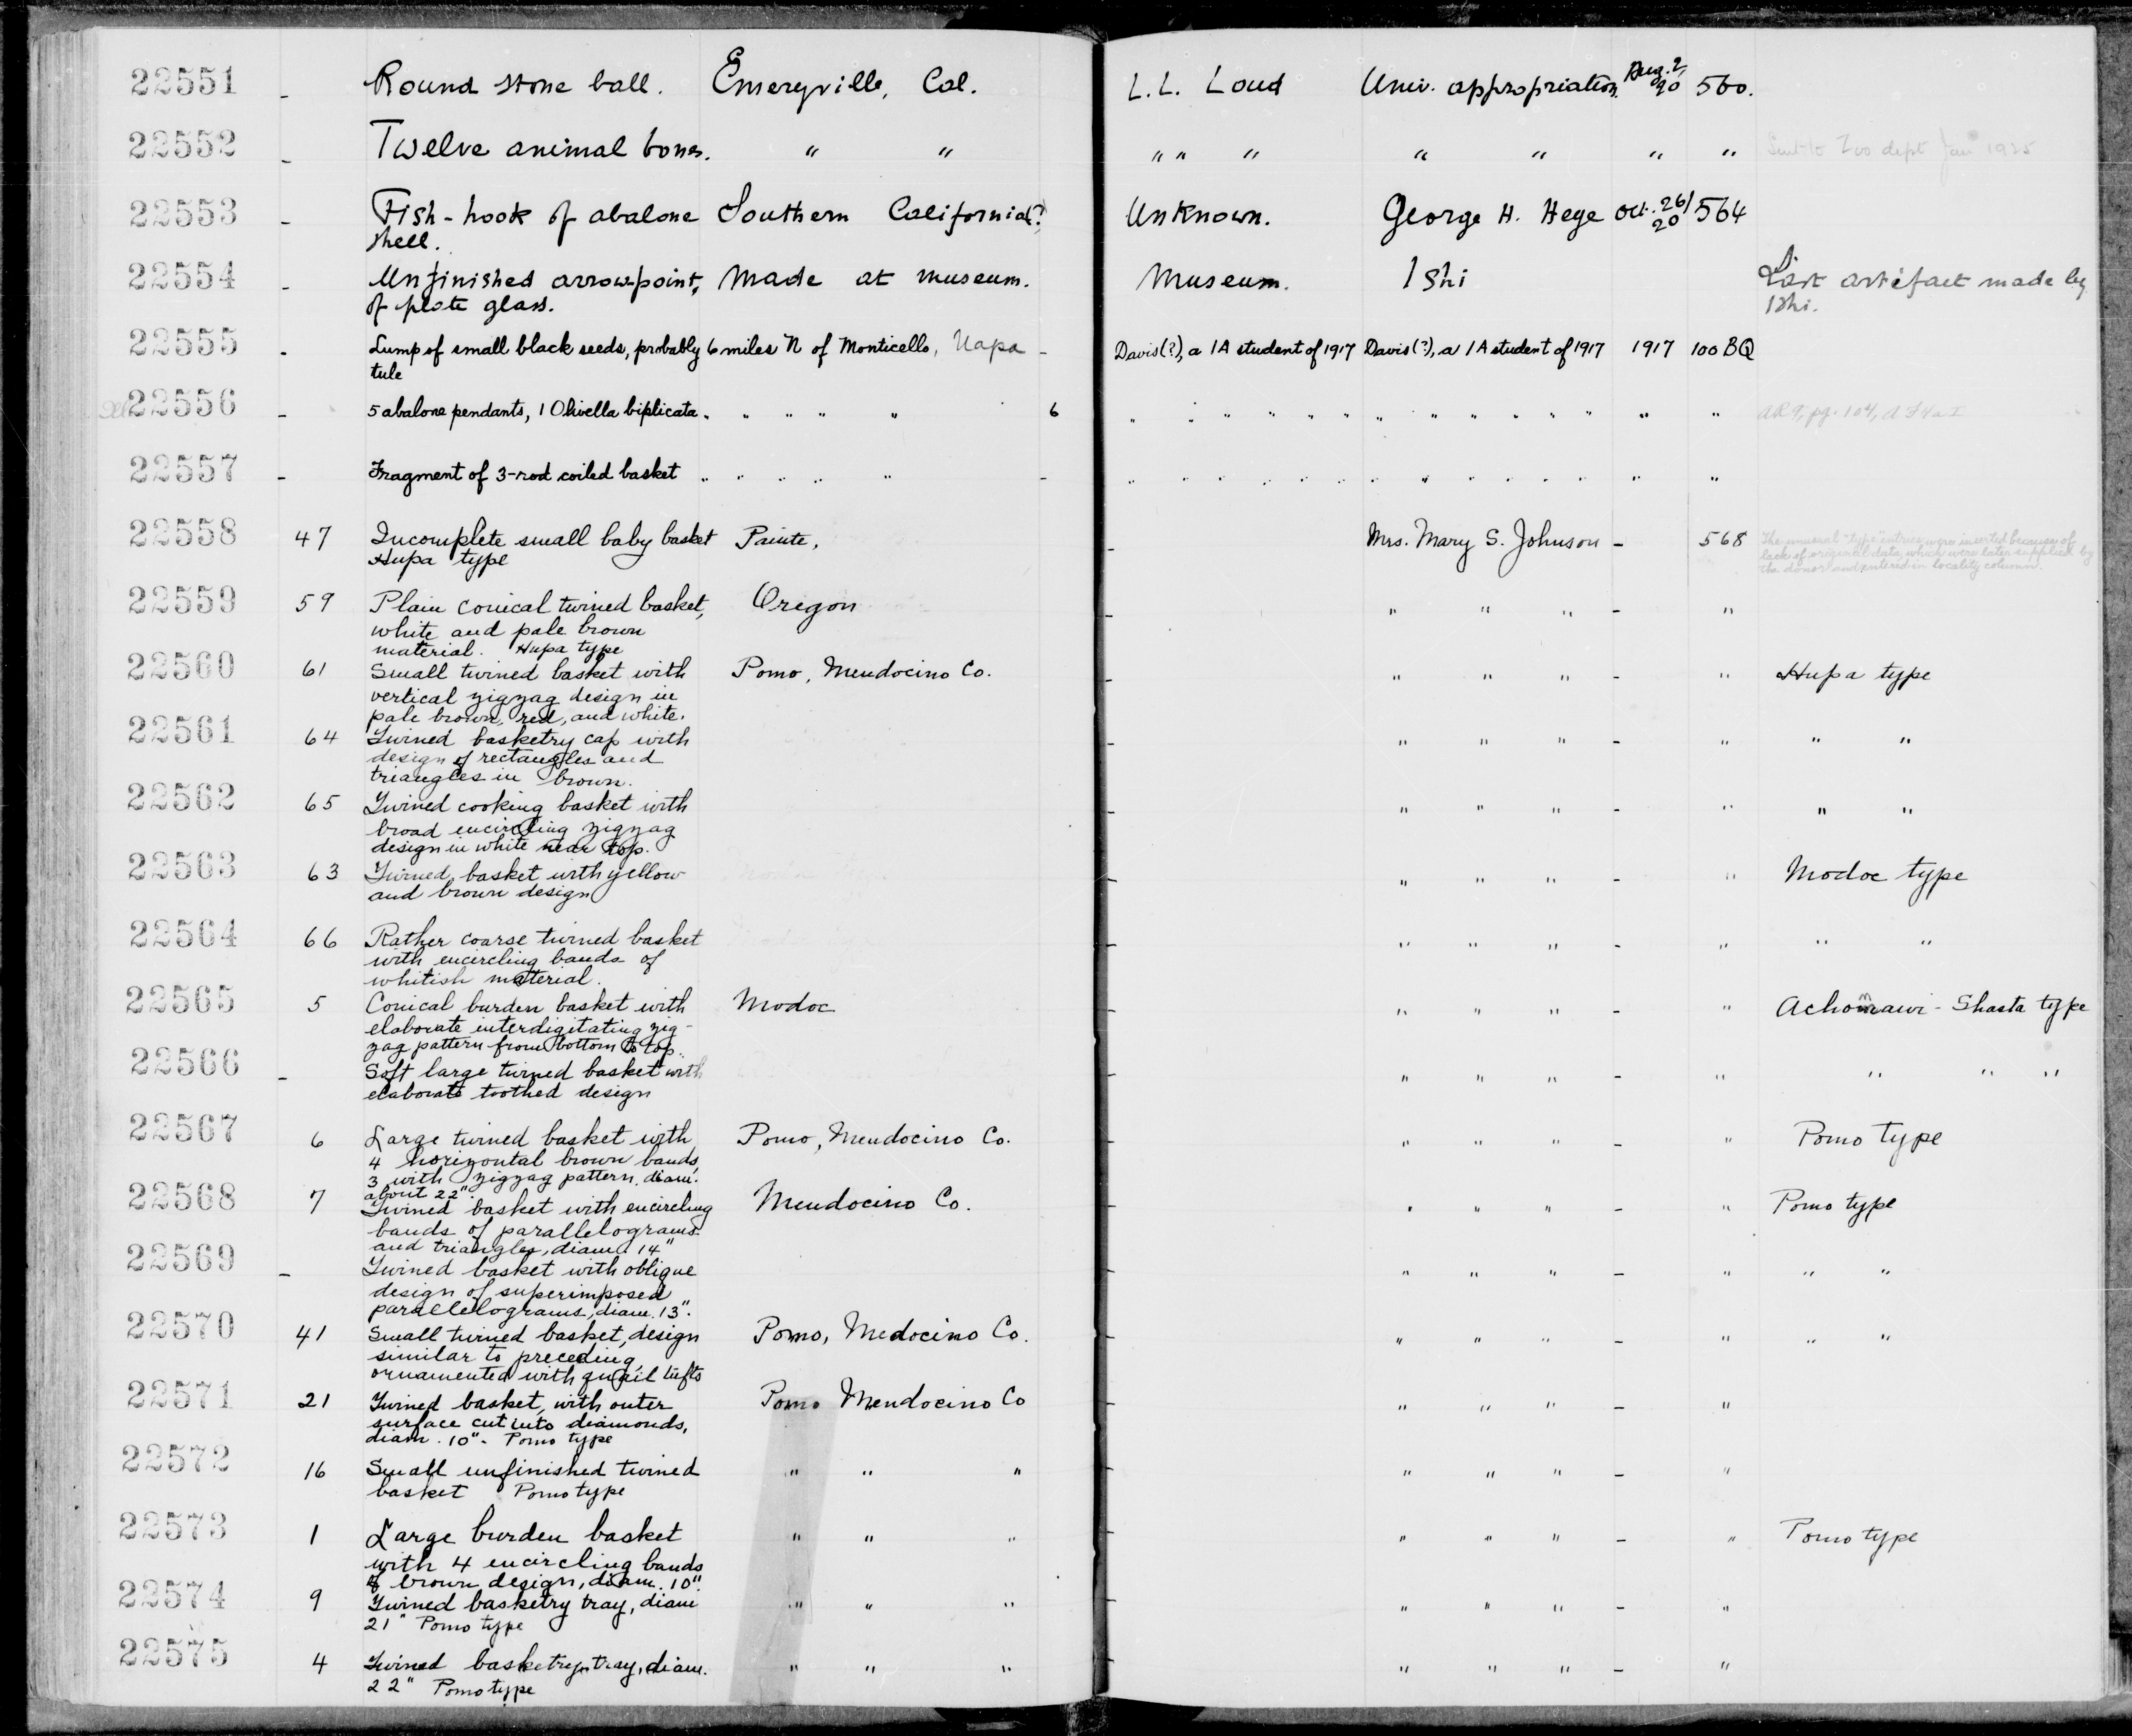 22551 - Round stone ball. Emeryville, Cal. L.L. Loud Univ. appropriation. Aug. 2, 20 560.
22552 - Twelve animal bones. " " " " " " " " " Sent to Zoo dept Jan 1925
22553 - Fish-hook of abalone Southern California(?) Unknown. George H. Hege Oct. 26/20 564
shell.
22554 - Unfinished arrowpoint, Made at museum. Museum. Ishi Last artifact made by
of plate glass. Ishi.
22555 - Lump of small black seeds, probably 6 miles N of Monticello, Napa - Davis(?), a 1A student of 1917 Davis(?), a 1A student of 1917 1917 100 BQ
tule
22556 - 5 abalone pendants, 1 Olivella biplicata " " " " " 6 " " " " " " " " " " " " " " " " AR 9, pp. 104,
22557 - Fragment of 3-rod coiled basket " " " " " - " " " " " " " " " " " " " " "
22558 47 Incomplete small baby basket Paiute, - Mrs. Mary S. Johnson - 568 The unusual "type" entries were inserted because of
Hupa type lack of original data, which were later supplied by
the donor and entered in locality column.
22559 59 Plain conical twined basket, Oregon - " " " - "
white and pale brown
material. Hupa type
22560 61 Small twined basket with Pomo, Mendocino Co. - " " " - " Hupa type
vertical zigzag design in
pale brown, red, and white.
22561 64 Twined basketry cap with - " " " - " " "
design of rectangles and
triangles in brown.
22562 65 Twined cooking basket with - " " " - " " "
broad encircling zigzag
design in white near top.
22563 63 Twined basket with yellow - " " " - " Modoc type
and brown design
22564 66 Rather coarse twined basket - " " " - " " "
with encircling bands of
whitish material.
22565 5 Conical burden basket with Modoc - " " " - " Achomawi-Shasta type
elaborate interdigitating zig-
zag pattern from bottom to top.
22566 - Soft large twined basket with - " " " - " " " "
elaborate toothed design
22567 6 Large twined basket with Pomo, Mendocino Co. - " " " - " Pomo type
4 horizontal brown bands,
3 with zigzag pattern. diam.
about 22".
22568 7 Twined basket with encircling Mendocino Co. - " " " - " Pomo type
bands of parallelograms
and triangles, diam. 14"
22569 - Twined basket with oblique - " " " - " " "
design of superimposed
parallelograms, diam. 13".
22570 41 Small twined basket, design Pomo, Medocino Co. - " " " - " " "
similar to preceding,
ornamented with quail tufts
22571 21 Twined basket, with outer Pomo Mendocino Co - " " " - "
surface cut into diamonds,
diam. 10". Pomo type
22572 16 Small unfinished twined " " " - " " " - "
basket Pomo type
22573 1 Large burden basket " " " - " " " - " Pomo type
with 4 encircling bands
of brown design, diam. 10".
22574 9 Twined basketry tray, diam " " " - " " " - "
21" Pomo type
22575 4 Twined basketry tray, diam. " " " - " " " - "
22" Pomo type